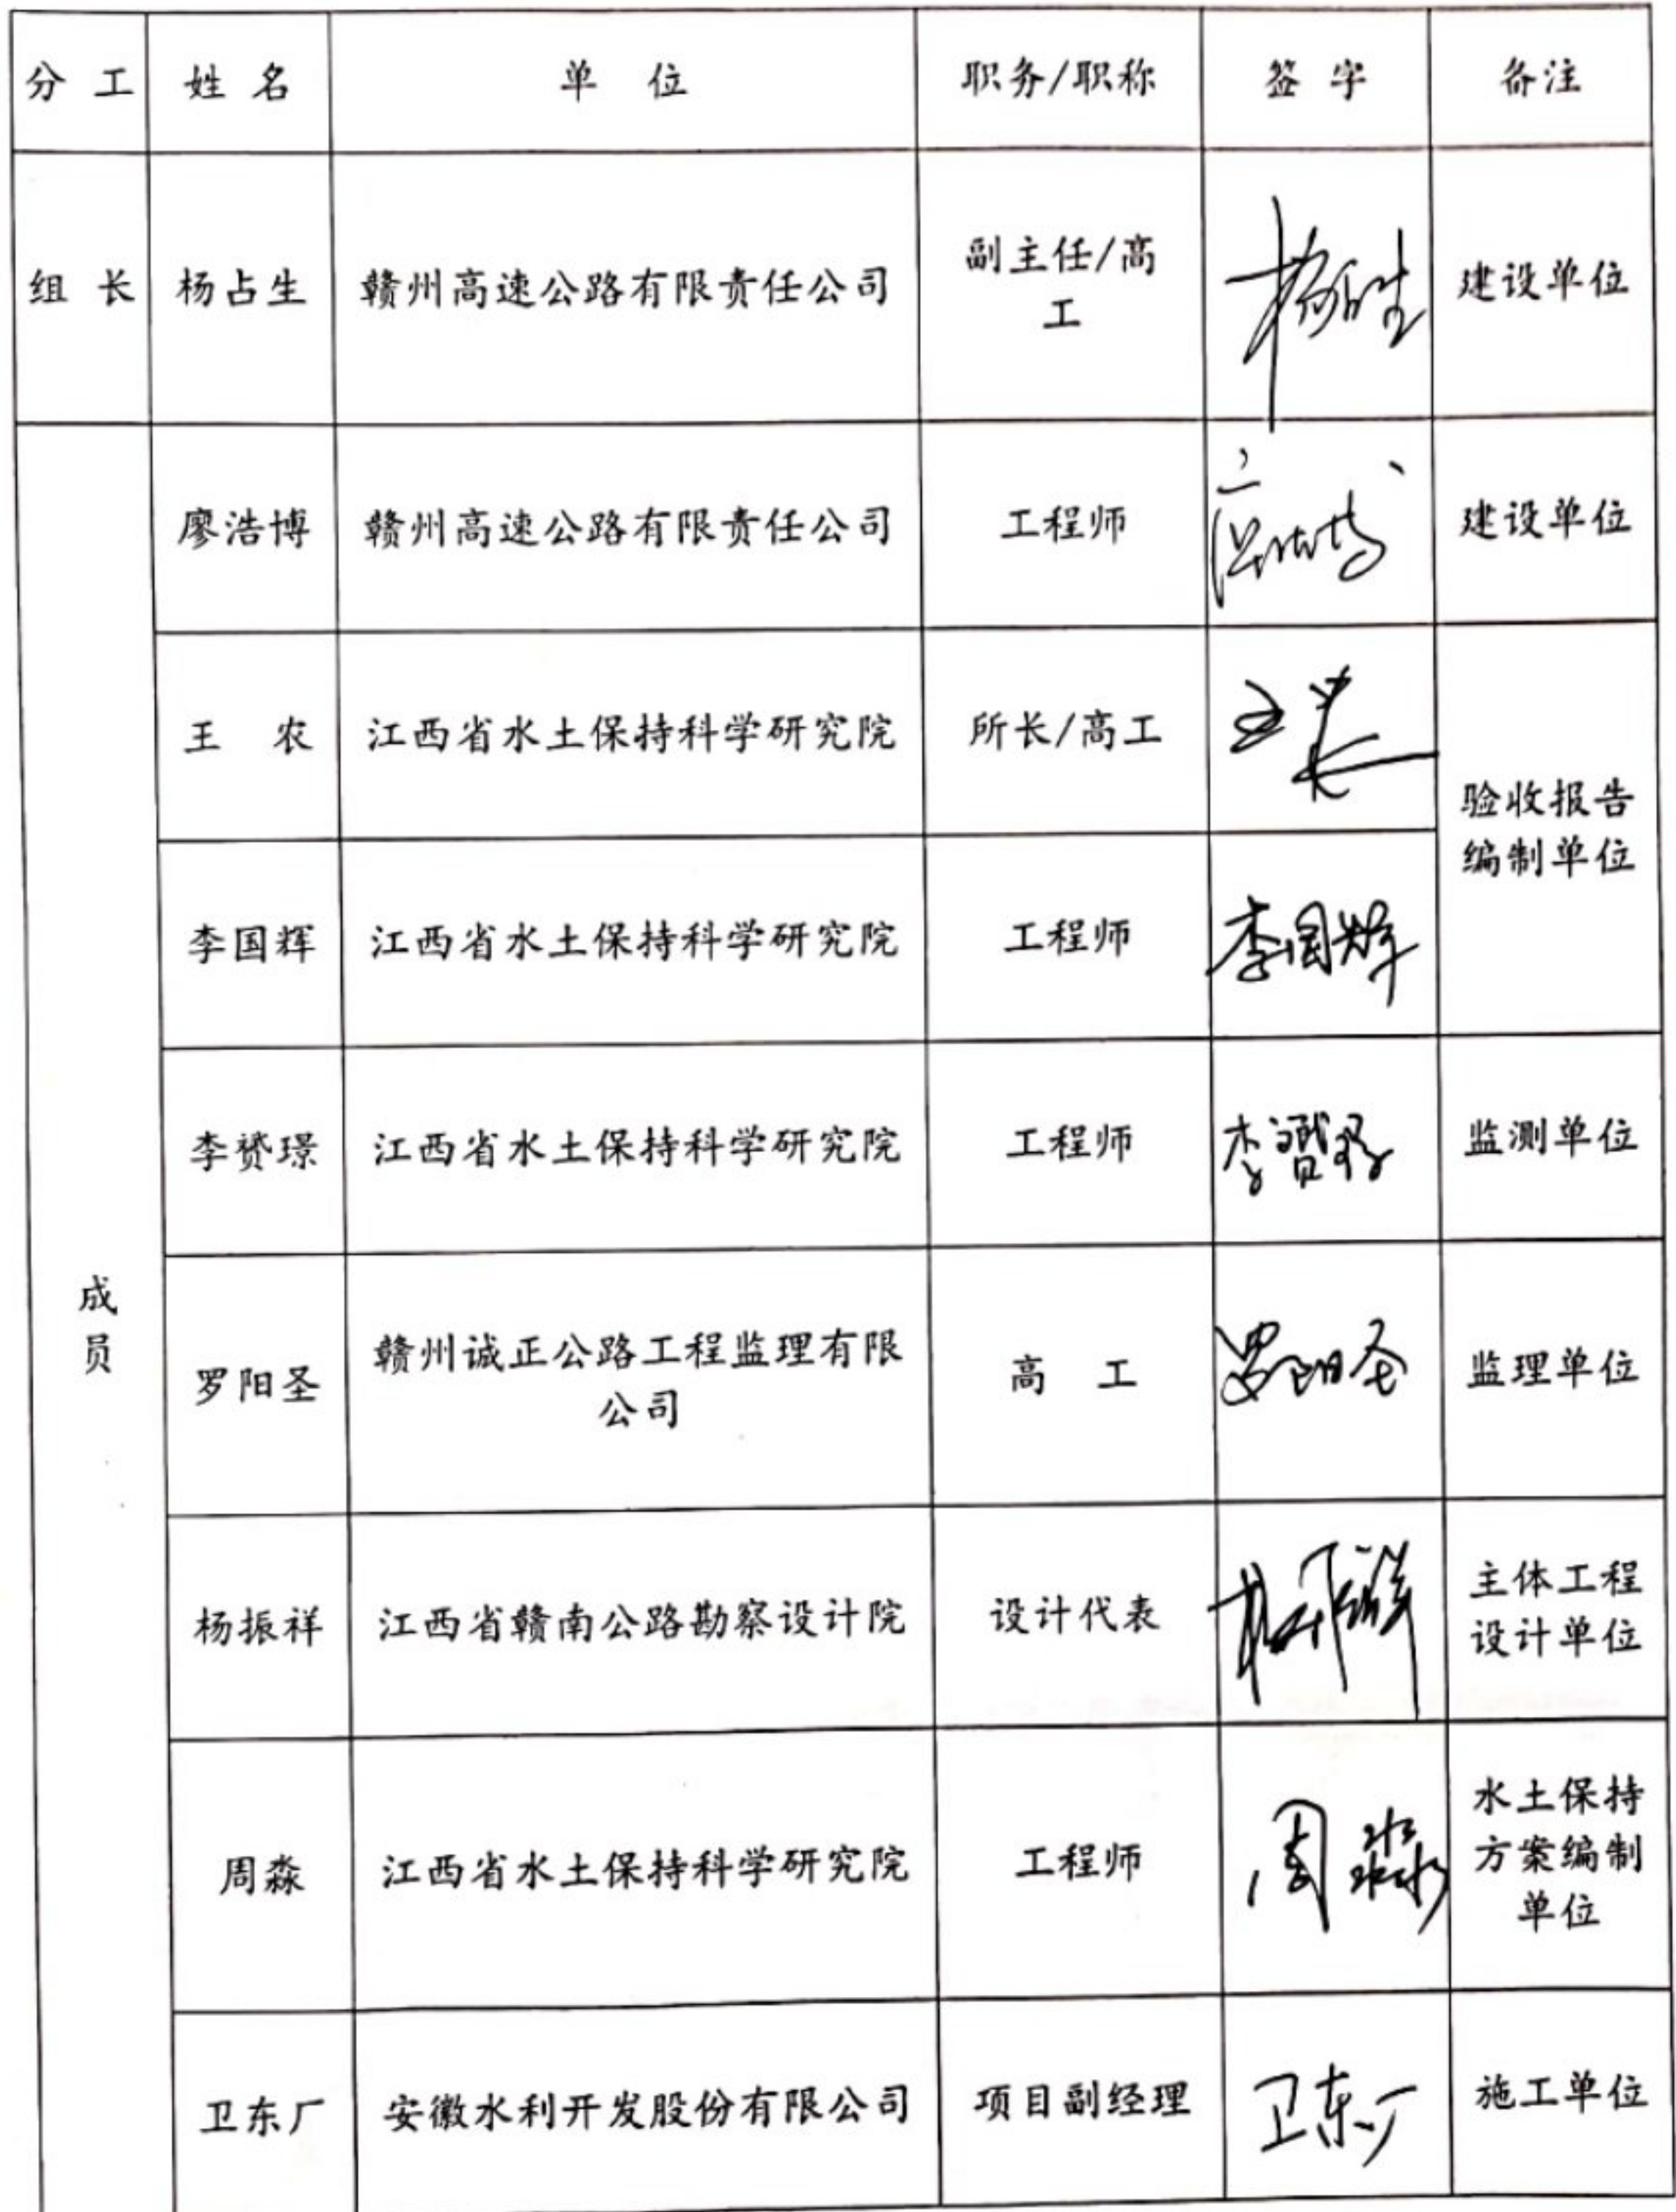 分工 姓名 单位 职务/职称 签字 备注
组长 杨占生 赣州高速公路有限责任公司 副主任/高
工 杨占生 建设单位
廖浩博 赣州高速公路有限责任公司 工程师 建设单位
王农 江西省水土保持科学研究院 所长/高工 王农
验收报告
编制单位
李国辉 江西省水土保持科学研究院 工程师 李国辉
李赟璟 江西省水土保持科学研究院 工程师 监测单位
成
员
罗阳圣 赣州诚正公路工程监理有限
公司 高工 罗阳圣 监理单位
杨振祥 江西省赣南公路勘察设计院 设计代表 杨振祥 主体工程
设计单位
周淼 江西省水土保持科学研究院 工程师 周淼 水土保持
方案编制
单位
卫东厂 安徽水利开发股份有限公司 项目副经理 卫东厂 施工单位